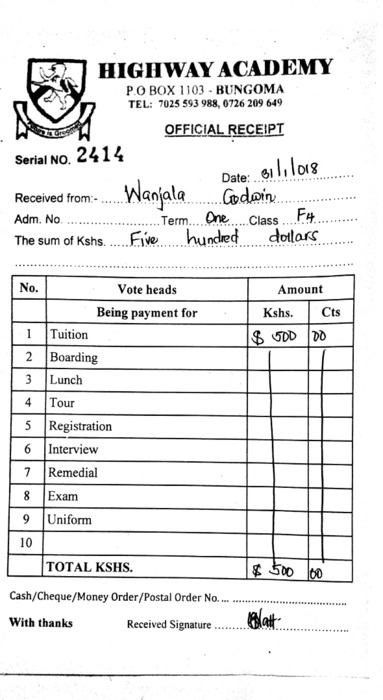 HIGHWAY ACADEMY
P.O BOX 1103 - BUNGOMA
TEL: 7025 593 988, 0726 209 649
OFFICIAL RECEIPT
Serial NO. 2414
Date: 31/1/018
Received from:- Wanjala Godwin
Adm. No. Term One Class F4
The sum of Kshs. Five hundred dollars
No. Vote heads Amount
Being payment for Kshs. Cts
1 Tuition $ 500 00
2 Boarding
3 Lunch
4 Tour
5 Registration
6 Interview
7 Remedial
8 Exam
9 Uniform
10
TOTAL KSHS. $ 500 00
Cash/Cheque/Money Order/Postal Order No.
With thanks Received Signature